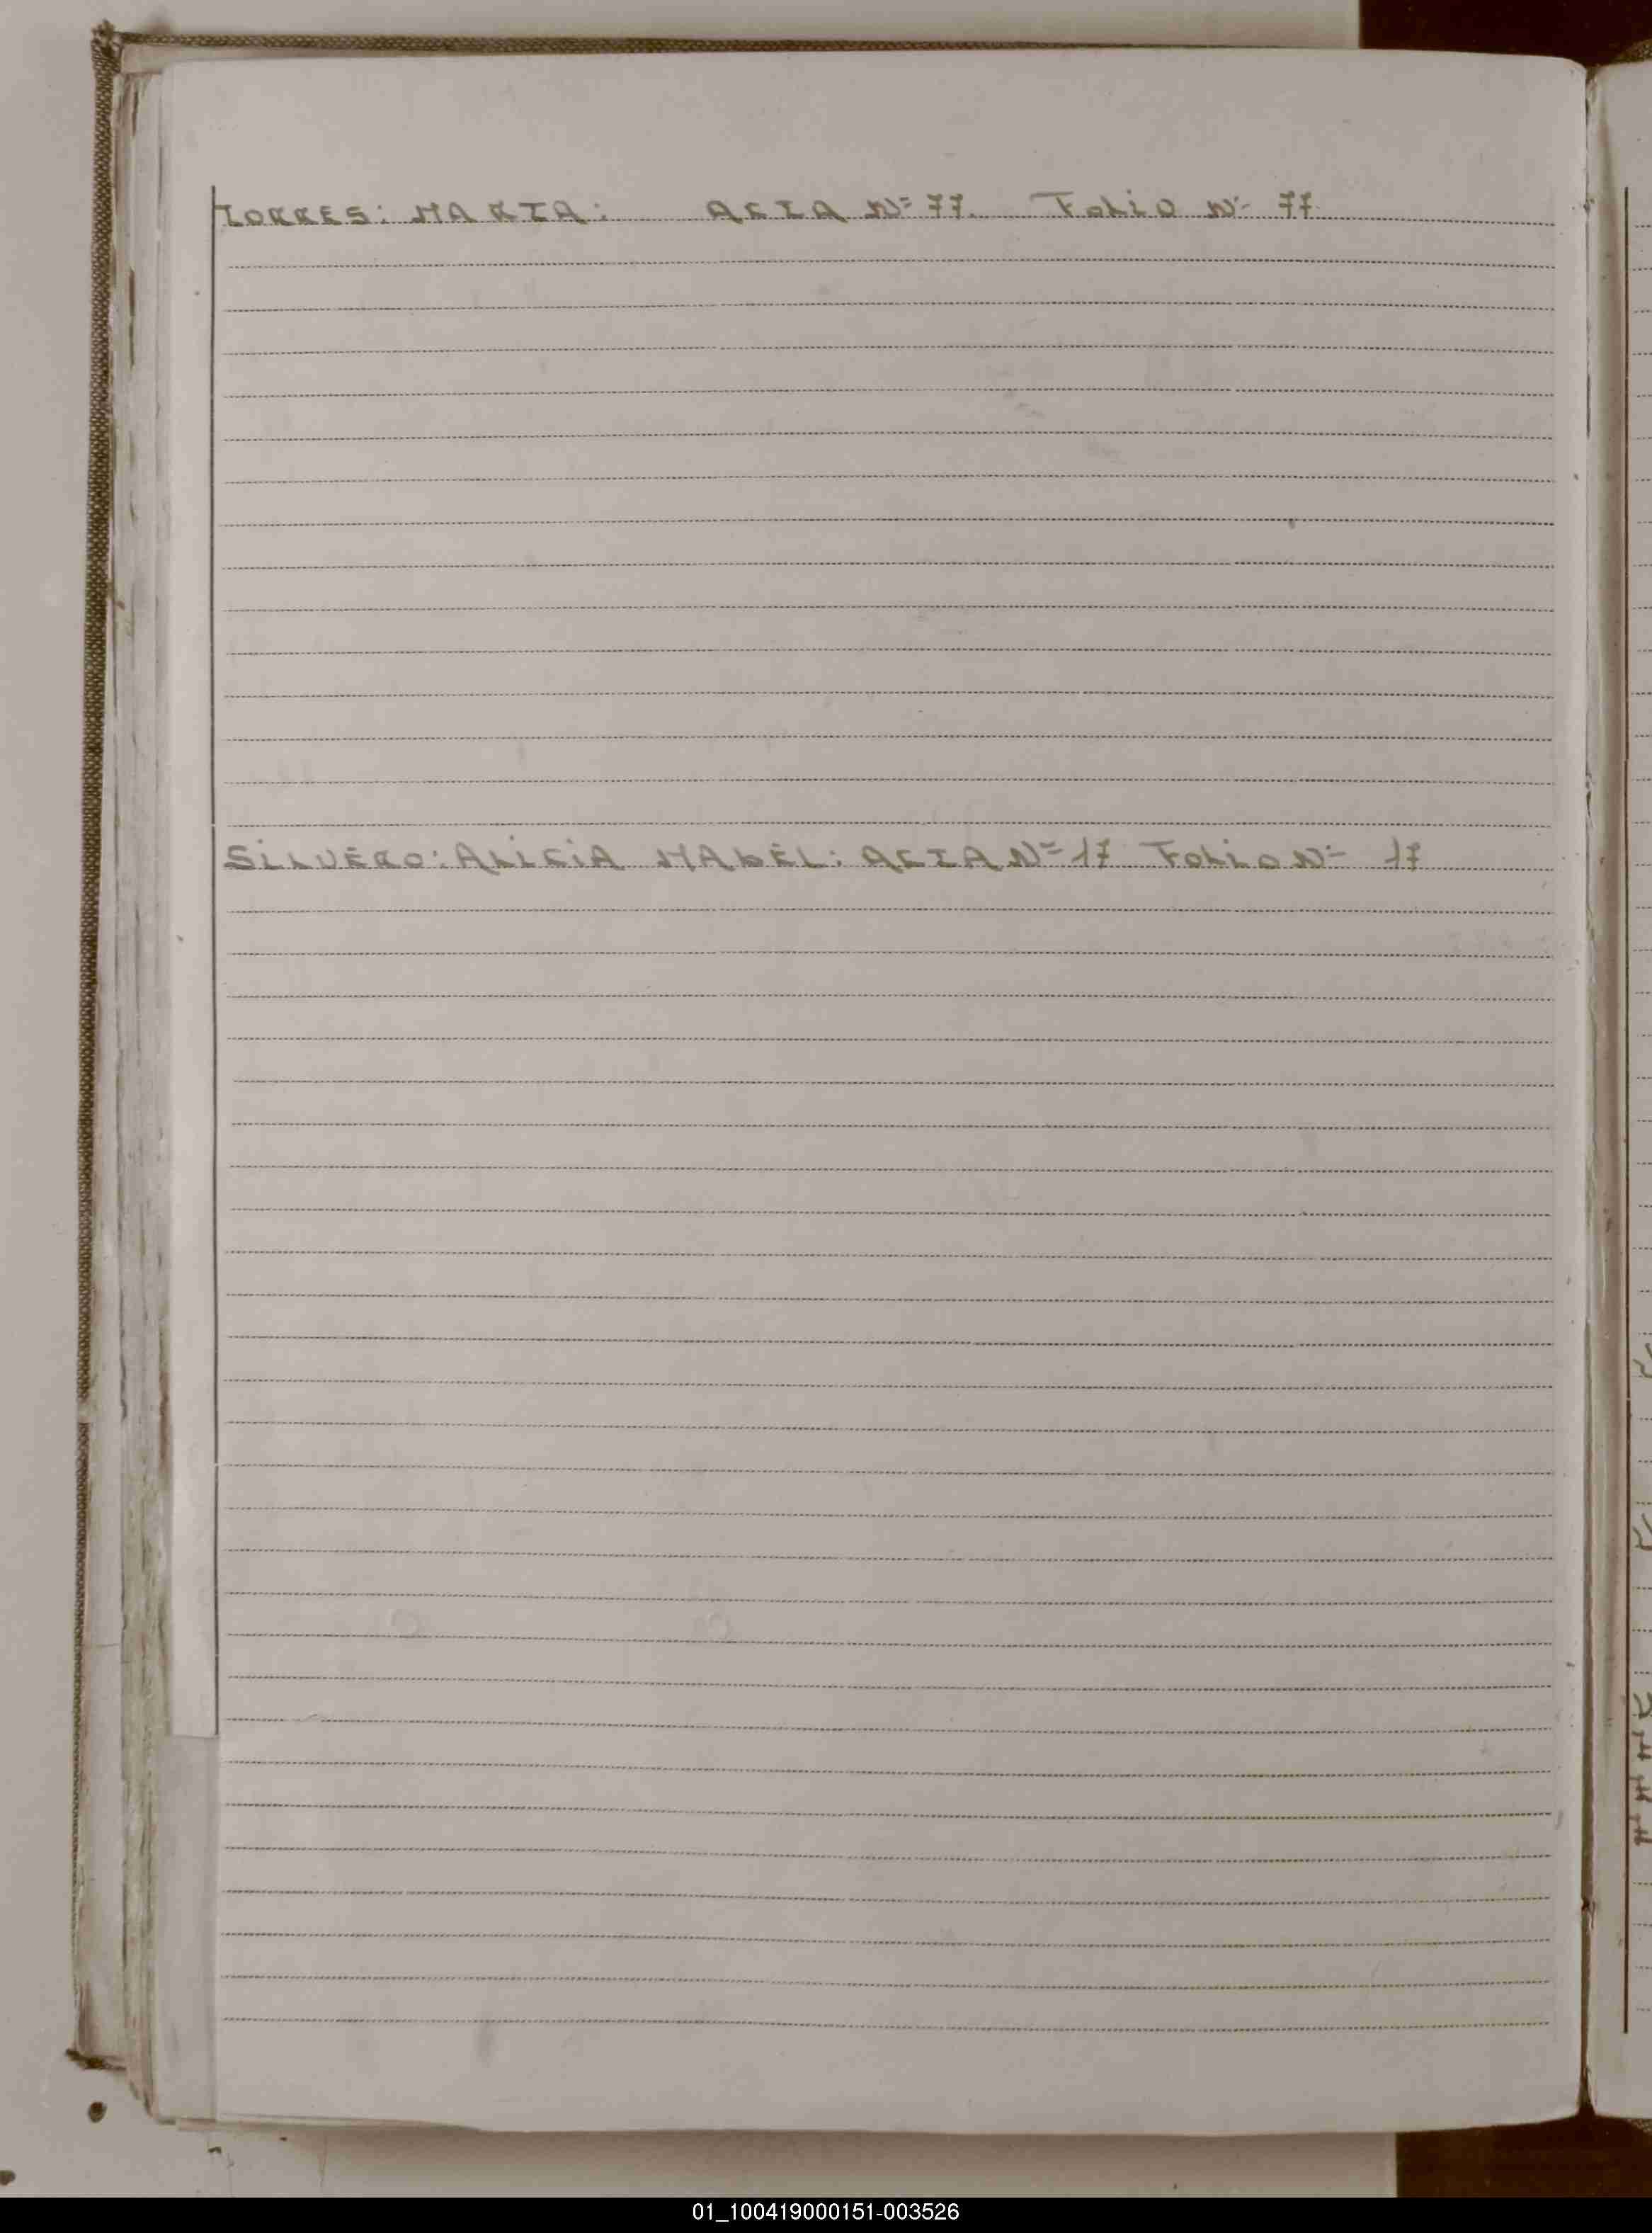 TORRES: MARIA: ACTA Nº 77. FOLIO Nº 77.
SILVERO: ALICIA MABEL: ACTA Nº 17 FOLIO Nº 17
01_100419000151-003526